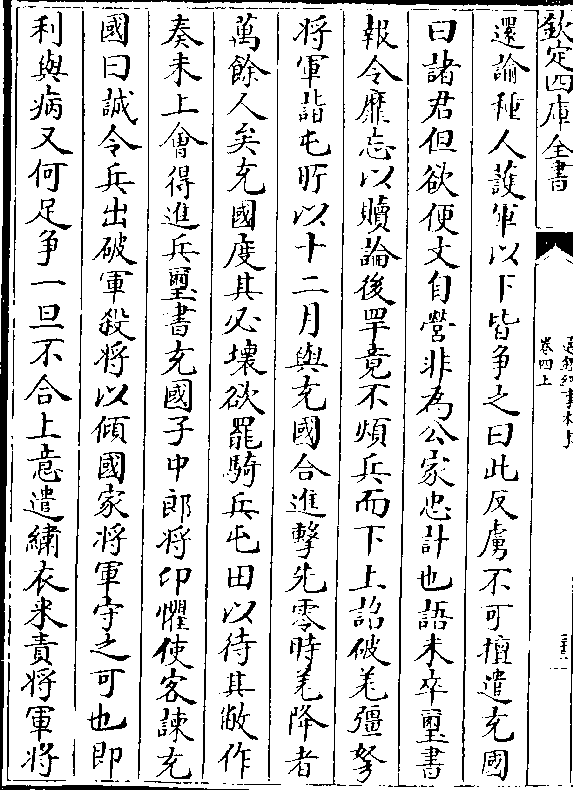 欽定四庫全書
卷四上
還論種人護軍以下皆争之曰此反虜不可擅遣充國
曰諸君但欲便文自營非為公家忠計也語未卒璽書
報令靡忘以贖論後罕竟不煩兵而下上詔破羌彊弩
將軍詣屯所以十二月與充國合進擊先零時羌降者
萬餘人矣充國度其必壞欲罷騎兵屯田以待其敝作
奏未上會得進兵璽書充國子中郎將卬懼使客諫充
國曰誠令兵出破軍殺將以傾國家將軍守之可也即
利與病又何足争一旦不合上意遣繡衣來責將軍將